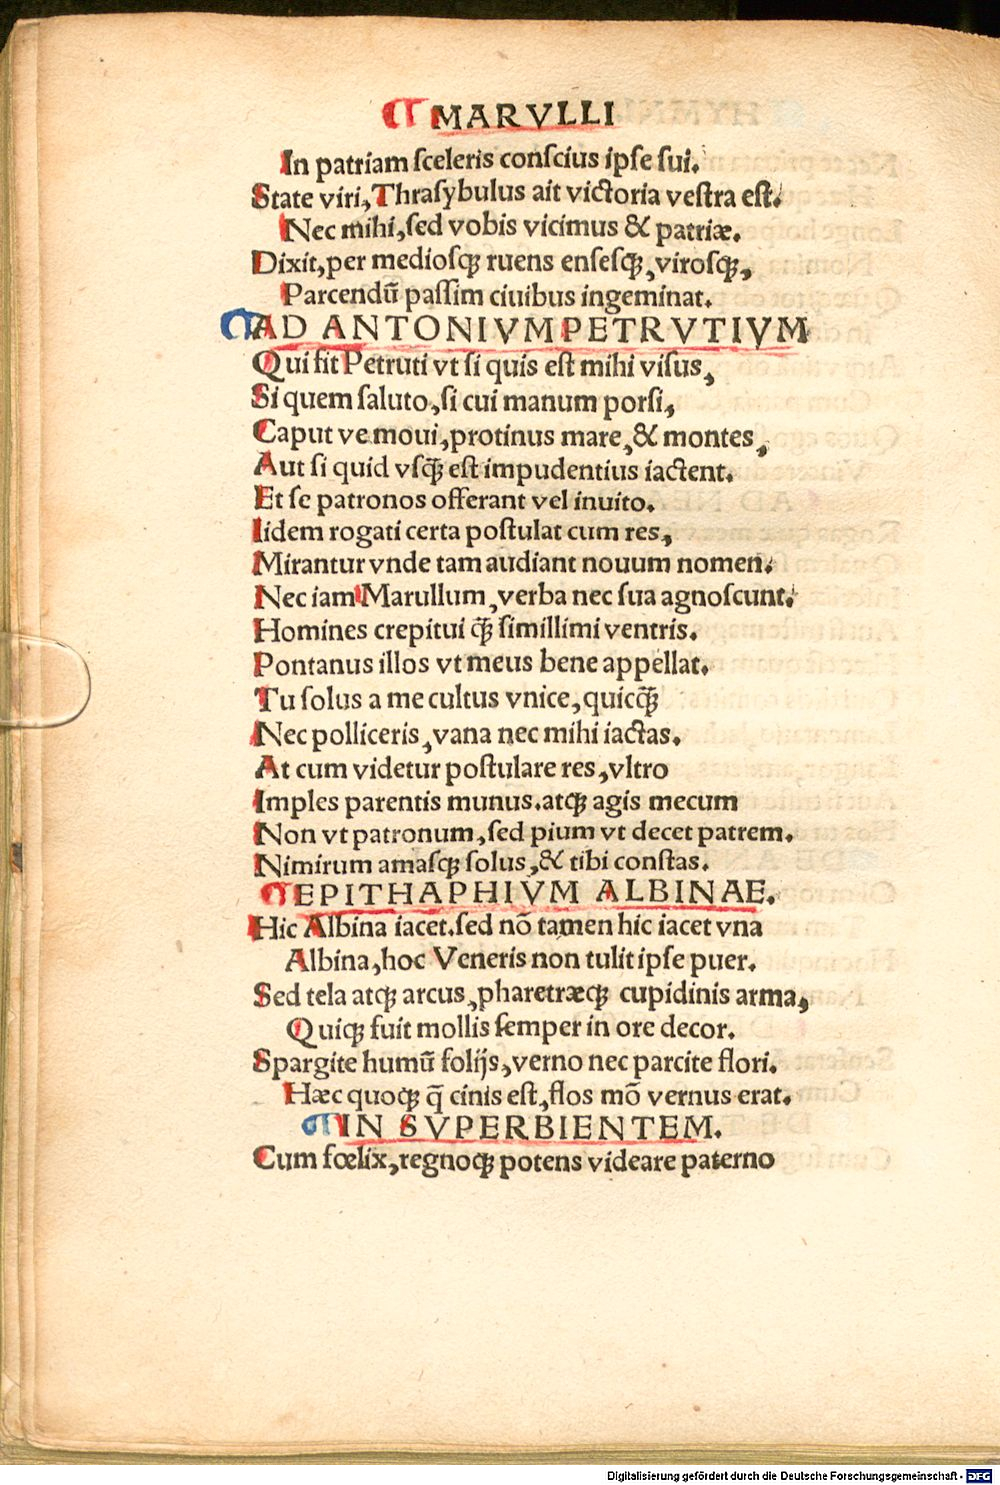 ¶ MARVLLI
In patriam sceleris conscius ipse sui.
State viri, Thrasybulus ait victoria vestra est.
Nec mihi, sed vobis vicimus & patriæ.
Dixit, per mediosqꝫ ruens ensesqꝫ, virosqꝫ,
Parcendū passim ciuibus ingeminat.
¶ AD ANTONIVM PETRVTIVM
Qui fit Petruti vt si quis est mihi visus,
Si quem saluto, si cui manum porsi,
Caput ve moui, protinus mare, & montes,
Aut si quid vsq̃ est impudentius iactent.
Et se patronos offerant vel inuito.
Iidem rogati certa postulat cum res,
Mirantur vnde tam audiant nouum nomen.
Nec iam Marullum, verba nec sua agnoscunt.
Homines crepitui q̃ simillimi ventris.
Pontanus illos vt meus bene appellat.
Tu solus a me cultus vnice, quicq̃
Nec polliceris, vana nec mihi iactas.
At cum videtur postulare res, vltro
Imples parentis munus. atqꝫ agis mecum
Non vt patronum, sed pium vt decet patrem.
Nimirum amasqꝫ solus, & tibi constas.
¶ EPITHAPHIVM ALBINAE.
Hic Albina iacet. sed nō tamen hic iacet vna
Albina, hoc Veneris non tulit ipse puer.
Sed tela atqꝫ arcus, pharetræqꝫ cupidinis arma,
Quiqꝫ fuit mollis semper in ore decor.
Spargite humū folijs, verno nec parcite flori.
Hæc quoqꝫ q̄ cinis est, flos mō vernus erat.
¶ IN SVPERBIENTEM.
Cum fœlix, regnoqꝫ potens videare paterno
Digitalisierung gefördert durch die Deutsche Forschungsgemeinschaft - DFG